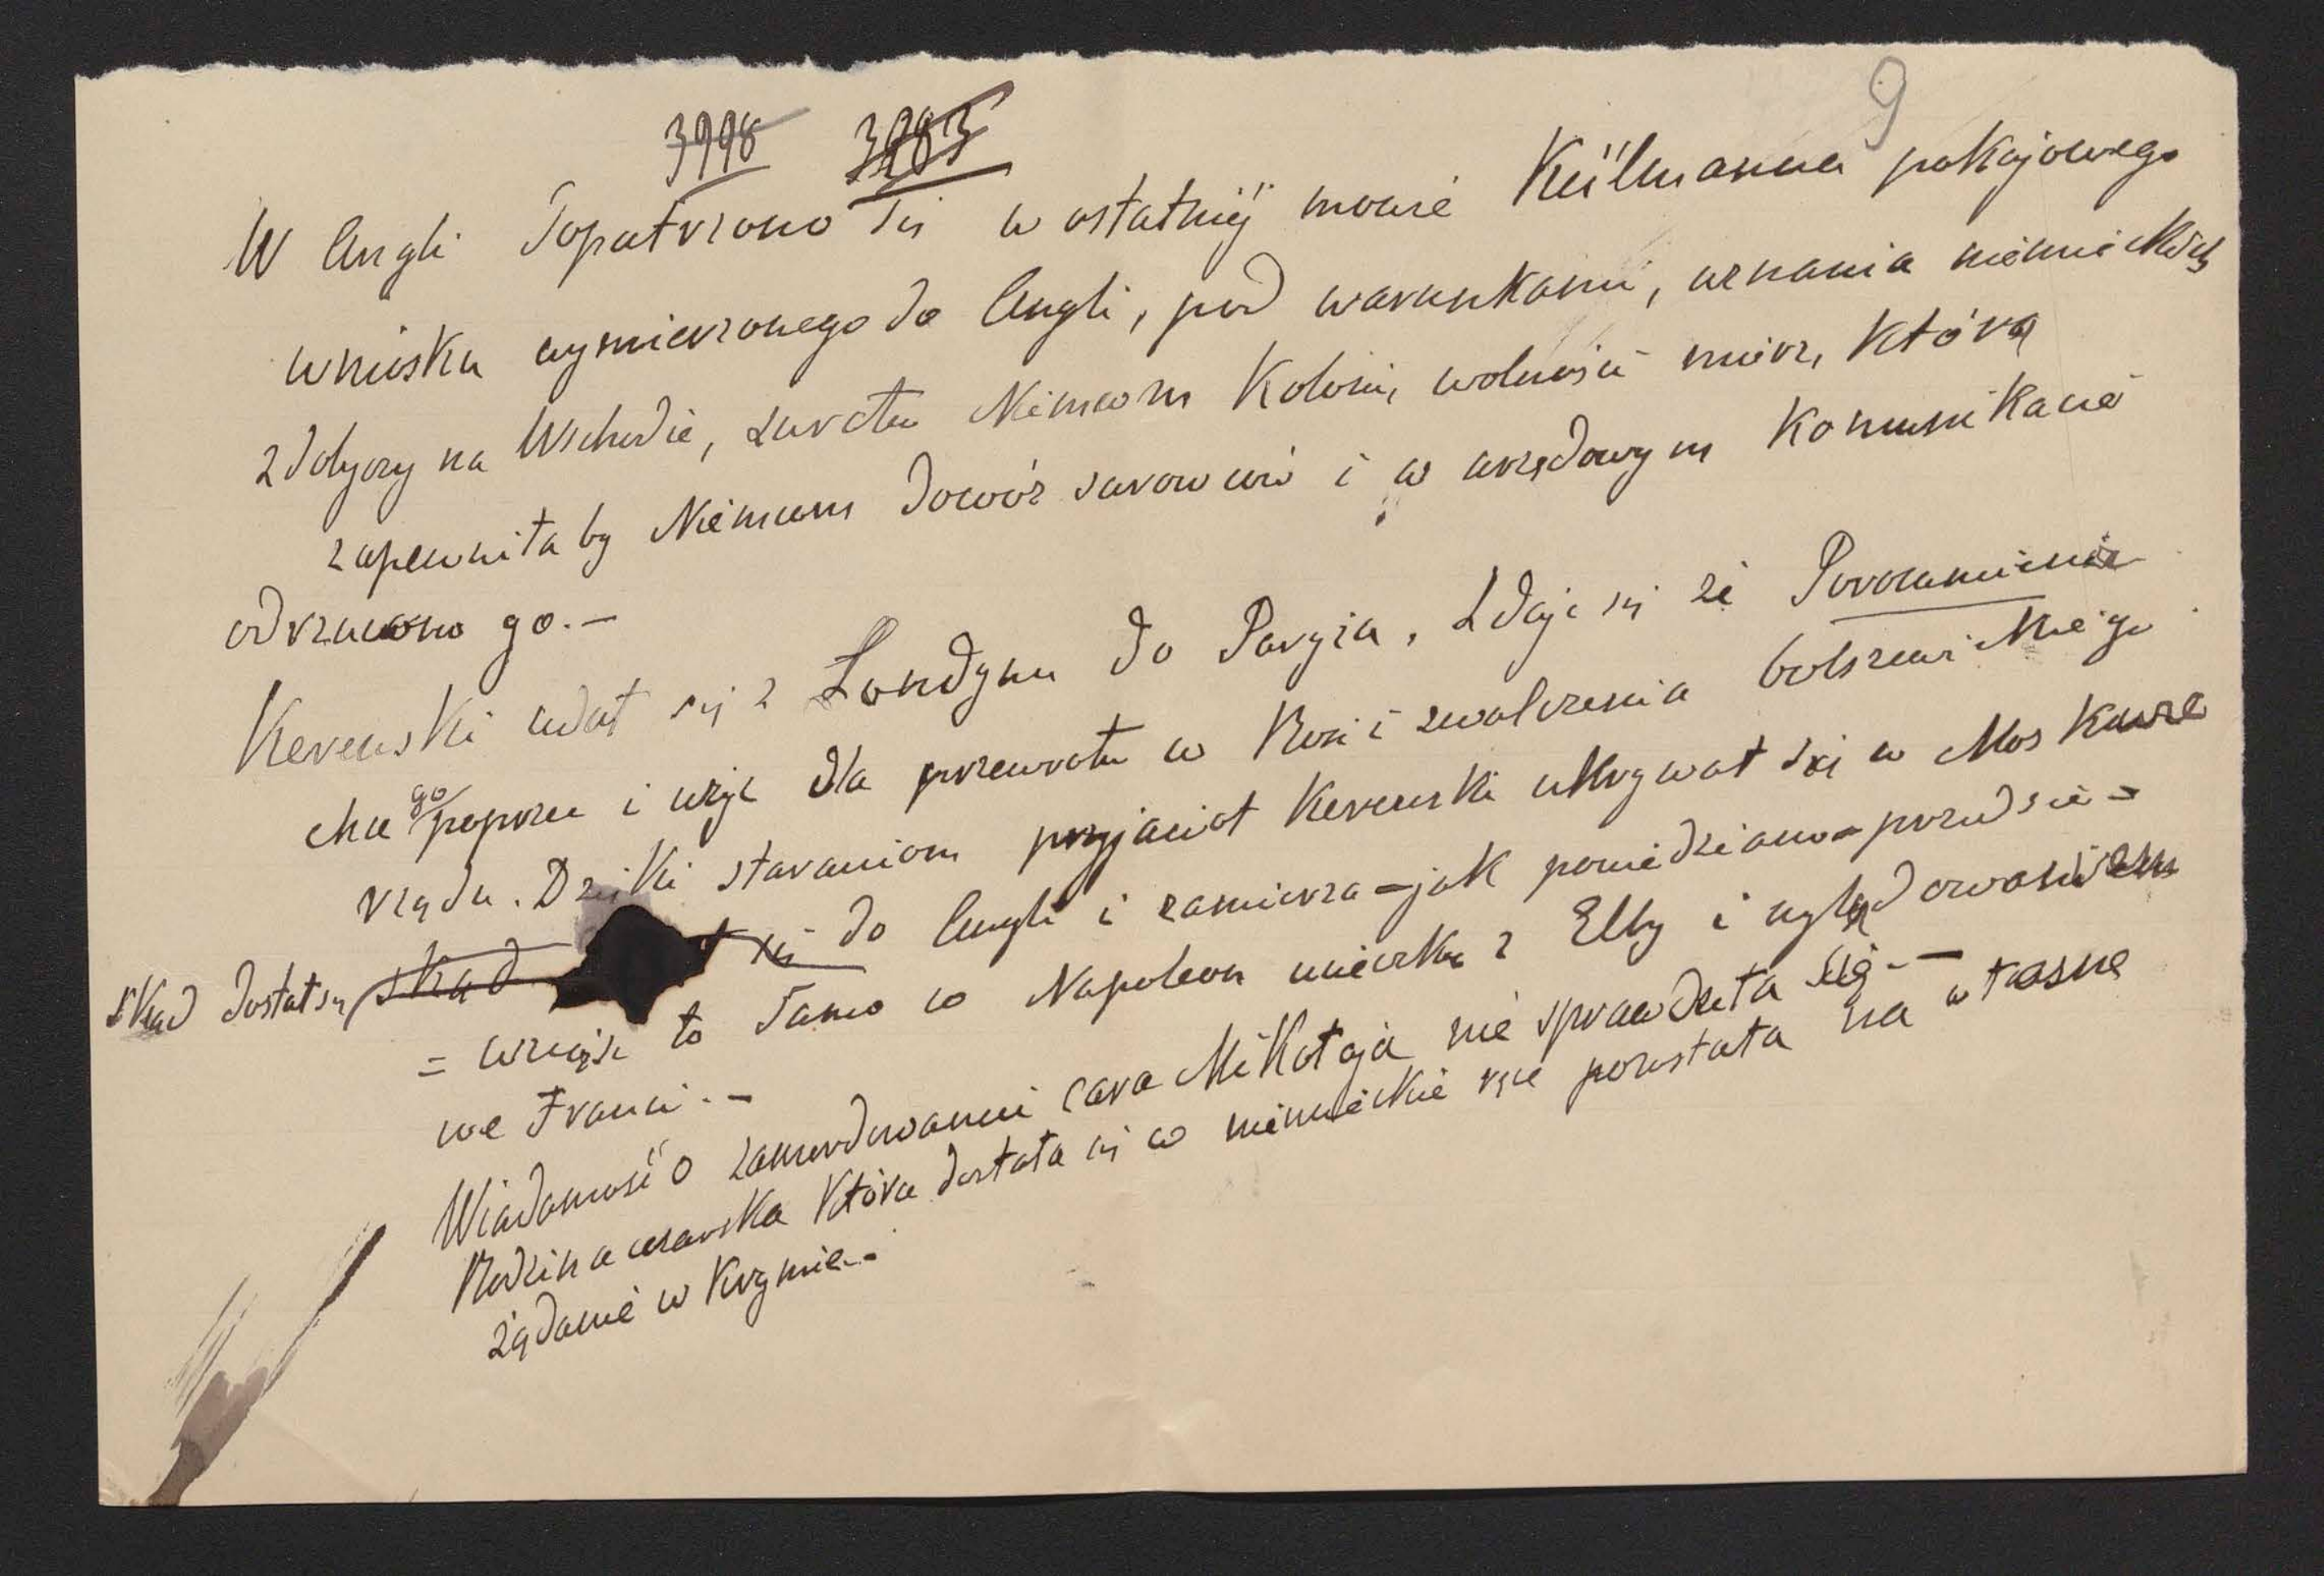 9
3998 3983
W Angli dopatrzono się w ostatniej mowie Külmanna pokojowego
wniosku wymierzonego do Angli, pod warunkami, uznania niemieckich
zdobyczy na Wschodie, zwrotu Niemcom Koloni, wolności mórz, którą
zapewniła by Niemcom dowóz surowców i w urzędowym Komunikacie
odrzucono go.—
Kerenski udał się z Londynu do Paryża, zdaje się że Porozumienie
chce go poprzeć i użyć dla przewrotu w Rosi i zwalczenia bolszewickiego
rządu. Dzięki staraniom przyjaciół Kerenski ukrywał się w Moskwie
skąd dostał się skąd się do Angli i zamierza – jak powiedziano – przedsię-
= wziąść to samo co Napoleon ucieczką z Elby i wylądowaniem
we Franci.—
Wiadomość o zamordowaniu cara Mikołaja nie sprawdziła się.—
Rodzina cesarska która dostała się w niemieckie ręce pozostała na własne
żądanie w Krymie.-